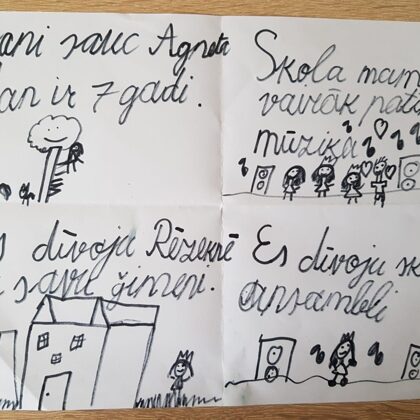 ani sauc Agneta
an ir 7 gadi.
Skola man
vairāk patī
mūzika
s dīvoju Rēzeknē
savu ģimeni.
Es dīvoju sk
ansamblī